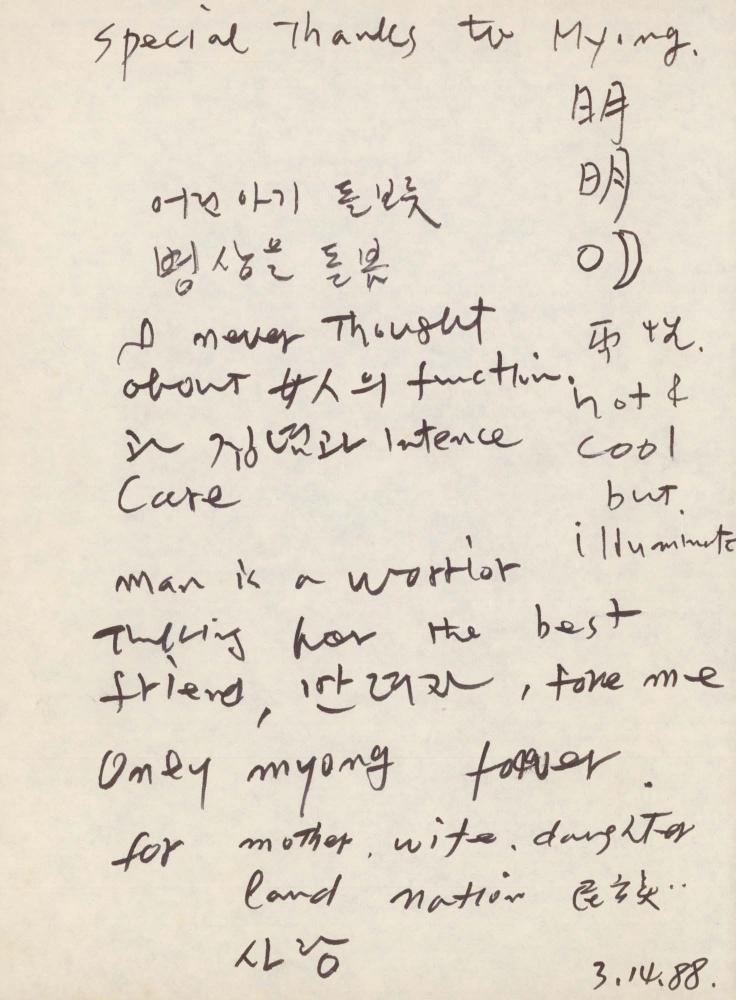 Special Thanks to Myong.
明
明
어린 아기 돌보듯
병상을 돌봄
I never Thought
about 女人의 function.
과 집념과 Intence
Care
hot &
cool
but.
illuminate
man is a worrior
Thinking for the best
friend, 반려자, fore me
Only myong forever.
for mother. wife. daughter
land nation 民族..
사랑
3.14.88.